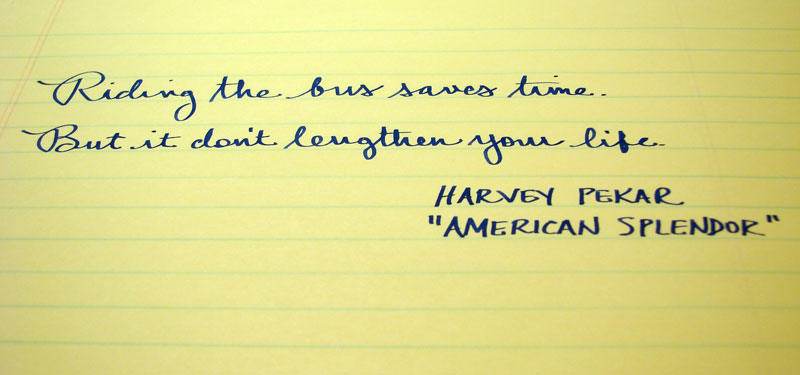 Riding the bus saves time.
But it don't lengthen your life.
HARVEY PEKAR
"AMERICAN SPLENDOR"